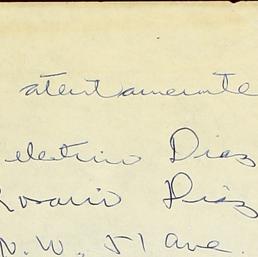 atentamente
Celestino Diaz
Rosario Diaz
N.W. 51 ave.